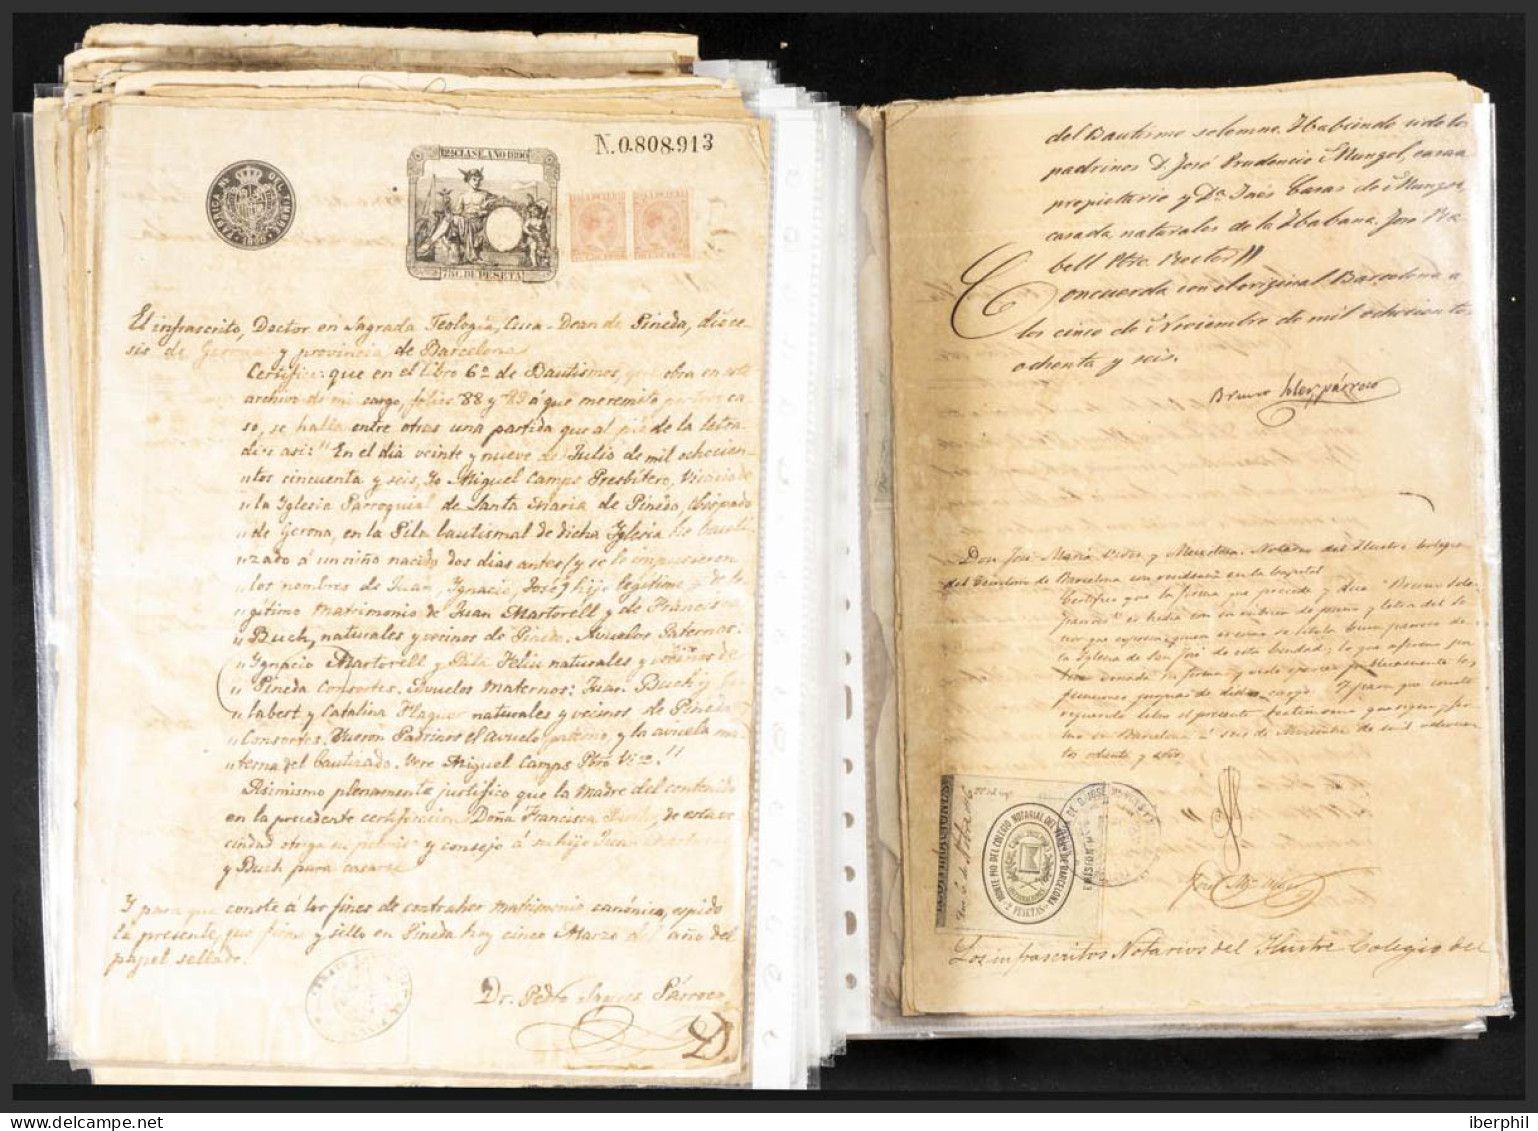 N. 0.808.913
FABRICA Nal DEL TIMBRE
1890
12ª CLASE. AÑO 1890
75 C. DE PESETA
El infrascrito, Doctor en Sagrada Teología, Cura-Dean de Pineda, dióce-
sis de Gerona y provincia de Barcelona
Certifico: que en el libro 6º de Bautismos que obra en este
archivo de mi cargo, folios 88 y 89 á que me remito
so, se halla entre otras una partida que al pie de la letra
dice asi: "En el dia veinte y nueve de Julio de mil ochocien-
"tos cincuenta y seis, Yo Miguel Camps Presbítero, Vicario de
"la Iglesia Parroquial de Santa Maria de Pineda, Obispado
"de Gerona, en la Pila bautismal de dicha Iglesia he bauti-
"zado á un niño nacido dos dias antes (y se le impusieron
"los nombres de Juan, Ignacio, José) hijo legítimo y de le-
gítimo matrimonio de Juan Martorell y de Francisca
"Buch, naturales y vecinos de Pineda. Avuelos Paternos:
"Ignacio Martorell y Rita Feliu naturales y vecinos de
"Pineda Consortes. Avuelos maternos: Juan Buch y
"labert y Catalina Flaquer naturales y vecinos de Pineda
"Consortes. Fueron Padrinos el Avuelo paterno, y la avuela ma-
"terna del bautizado. Vere Miguel Camps Pbro Vic."
Asimismo plenamente justifico que la Madre del contenido
en la precedente certificacion Doña Francisca Buch, de esta ve-
cindad otorga su permiso y consejo á su hijo Juan Martorell
y Buch para casarse
Y para que conste á los fines de contraher matrimonio canónico, espido
la presente, que firmo y sello en Pineda hoy cinco Marzo del año del
papel sellado.
Dr. Pedro Jaques Párroco
del Bautismo solemne. Habiendo sido los
padrinos D. José Prudencio Mungol, casado
propietario y Dª Inés Casas de Mungol,
casada, naturales de la Habana. José Ra-
bell Pbro. Rector"
Concuerda con el original Barcelona a
los cinco de Noviembre de mil ochocientos
ochenta y seis.
Bruno Soler, párroco
Don José Maria Vives y Mendoza, Notario del Ilustre Colegio
del Territorio de Barcelona con residencia en la capital
Certifico que la firma que precede y dice "Bruno Soler
párroco" es hecha con su
la Iglesia de San José de esta Ciudad; lo que afirmo por
funciones propias de dicho cargo. Y para que conste
requerido libro el presente testimonio que signo y fir-
mo en Barcelona á seis de Noviembre de mil ochocien-
tos ochenta y seis.
LEGITIMACIONES
MONTE PIO DEL COLEGIO NOTARIAL DEL TERRº DE BARCELONA
2 PESETAS
José Mª Vives
Los infrascritos Notarios del Ilustre Colegio del
iberphil